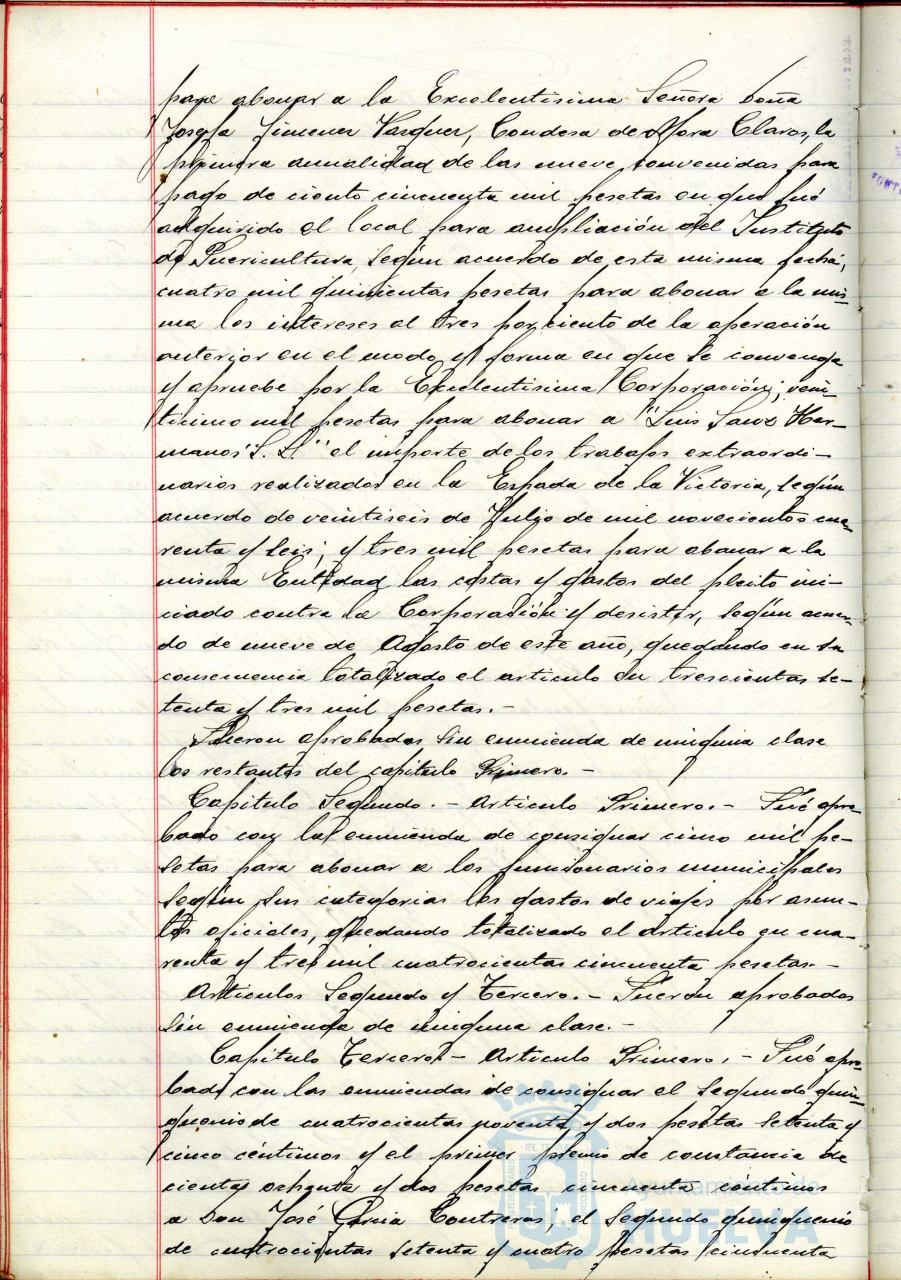 para abonar a la Excelentísima Señora Doña
Josefa Jimenez Vasquez, Condesa de Mora Claros, la
primera anualidad de las nueve convenidas para
pago de ciento cincuenta mil pesetas en que fué
adquirido el local para ampliación del Instituto
de Puericultura, según acuerdo de esta misma fecha;
cuatro mil quinientas pesetas para abonar a la mis-
ma los intereses al tres por ciento de la operación
anterior en el modo y forma en que se convenga
y apruebe por la Excelentísima Corporación; vein-
ticinco mil pesetas para abonar a "Luis Sanz Her-
manos S. L." el importe de los trabajos extraordi-
narios realizados en la Espada de la Victoria, según
acuerdo de veintiseis de Julio de mil novecientos cua-
renta y seis; y tres mil pesetas para abonar a la
misma Entidad las costas y gastos del pleito ini-
ciado contra la Corporación y desistir, según acuer-
do de nueve de Agosto de este año, quedando en su
consecuencia totalizado el articulo en trescientas se-
tenta y tres mil pesetas.-
Fueron aprobados sin enmienda de ninguna clase
los restantes del capitulo Primero.-
Capitulo Segundo.- Articulo Primero.- Fué apro-
bado con la enmienda de consignar cinco mil pe-
setas para abonar a los funcionarios municipales
según sus categorias los gastos de viajes por asun-
tos oficiales, quedando totalizado el articulo en cua-
renta y tres mil cuatrocientas cincuenta pesetas.-
Articulos Segundo y Tercero.- Fueron aprobados
sin enmienda de ninguna clase.-
Capitulo Tercero.- Articulo Primero.- Fué apro-
bado con las enmiendas de consignar el segundo quin-
quenio de cuatrocientas noventa y dos pesetas setenta y
cinco céntimos y el primer premio de constancia de
cientas ochenta y dos pesetas cincuenta céntimos
a Don José Garcia Contreras; el segundo quinquenio
de cuatrocientas setenta y cuatro pesetas cincuenta
Ayuntamiento de
HUELVA